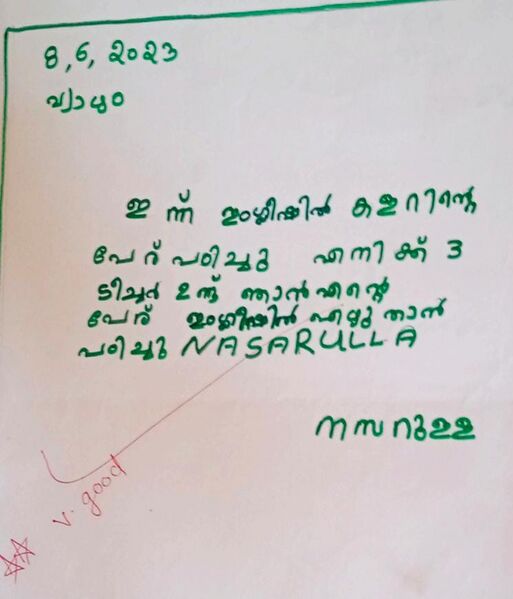 8,6,2023
വ്യാഴം
ഇന്ന് ഇംഗ്ലീഷിൽ കളറിന്റെ
പേര് പഠിച്ചു എനിക്ക് 3
ടീച്ചർ ഉണ്ട് ഞാൻ എന്റെ
പേര് ഇംഗ്ലീഷിൽ എഴുതാൻ
പഠിച്ചു NASARULLA
നസറുള്ള
v. good